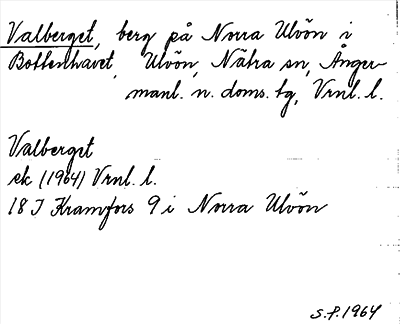 Valberget, berg på Norra Ulvön i
Bottenhavet, Ulvön, Nätra sn, Ånger-
manl. n. doms. tg, Vrnl. l.
Valberget
ek (1964) Vrnl. l.
18 J Kramfors 9 i Norra Ulvön
S.F. 1964